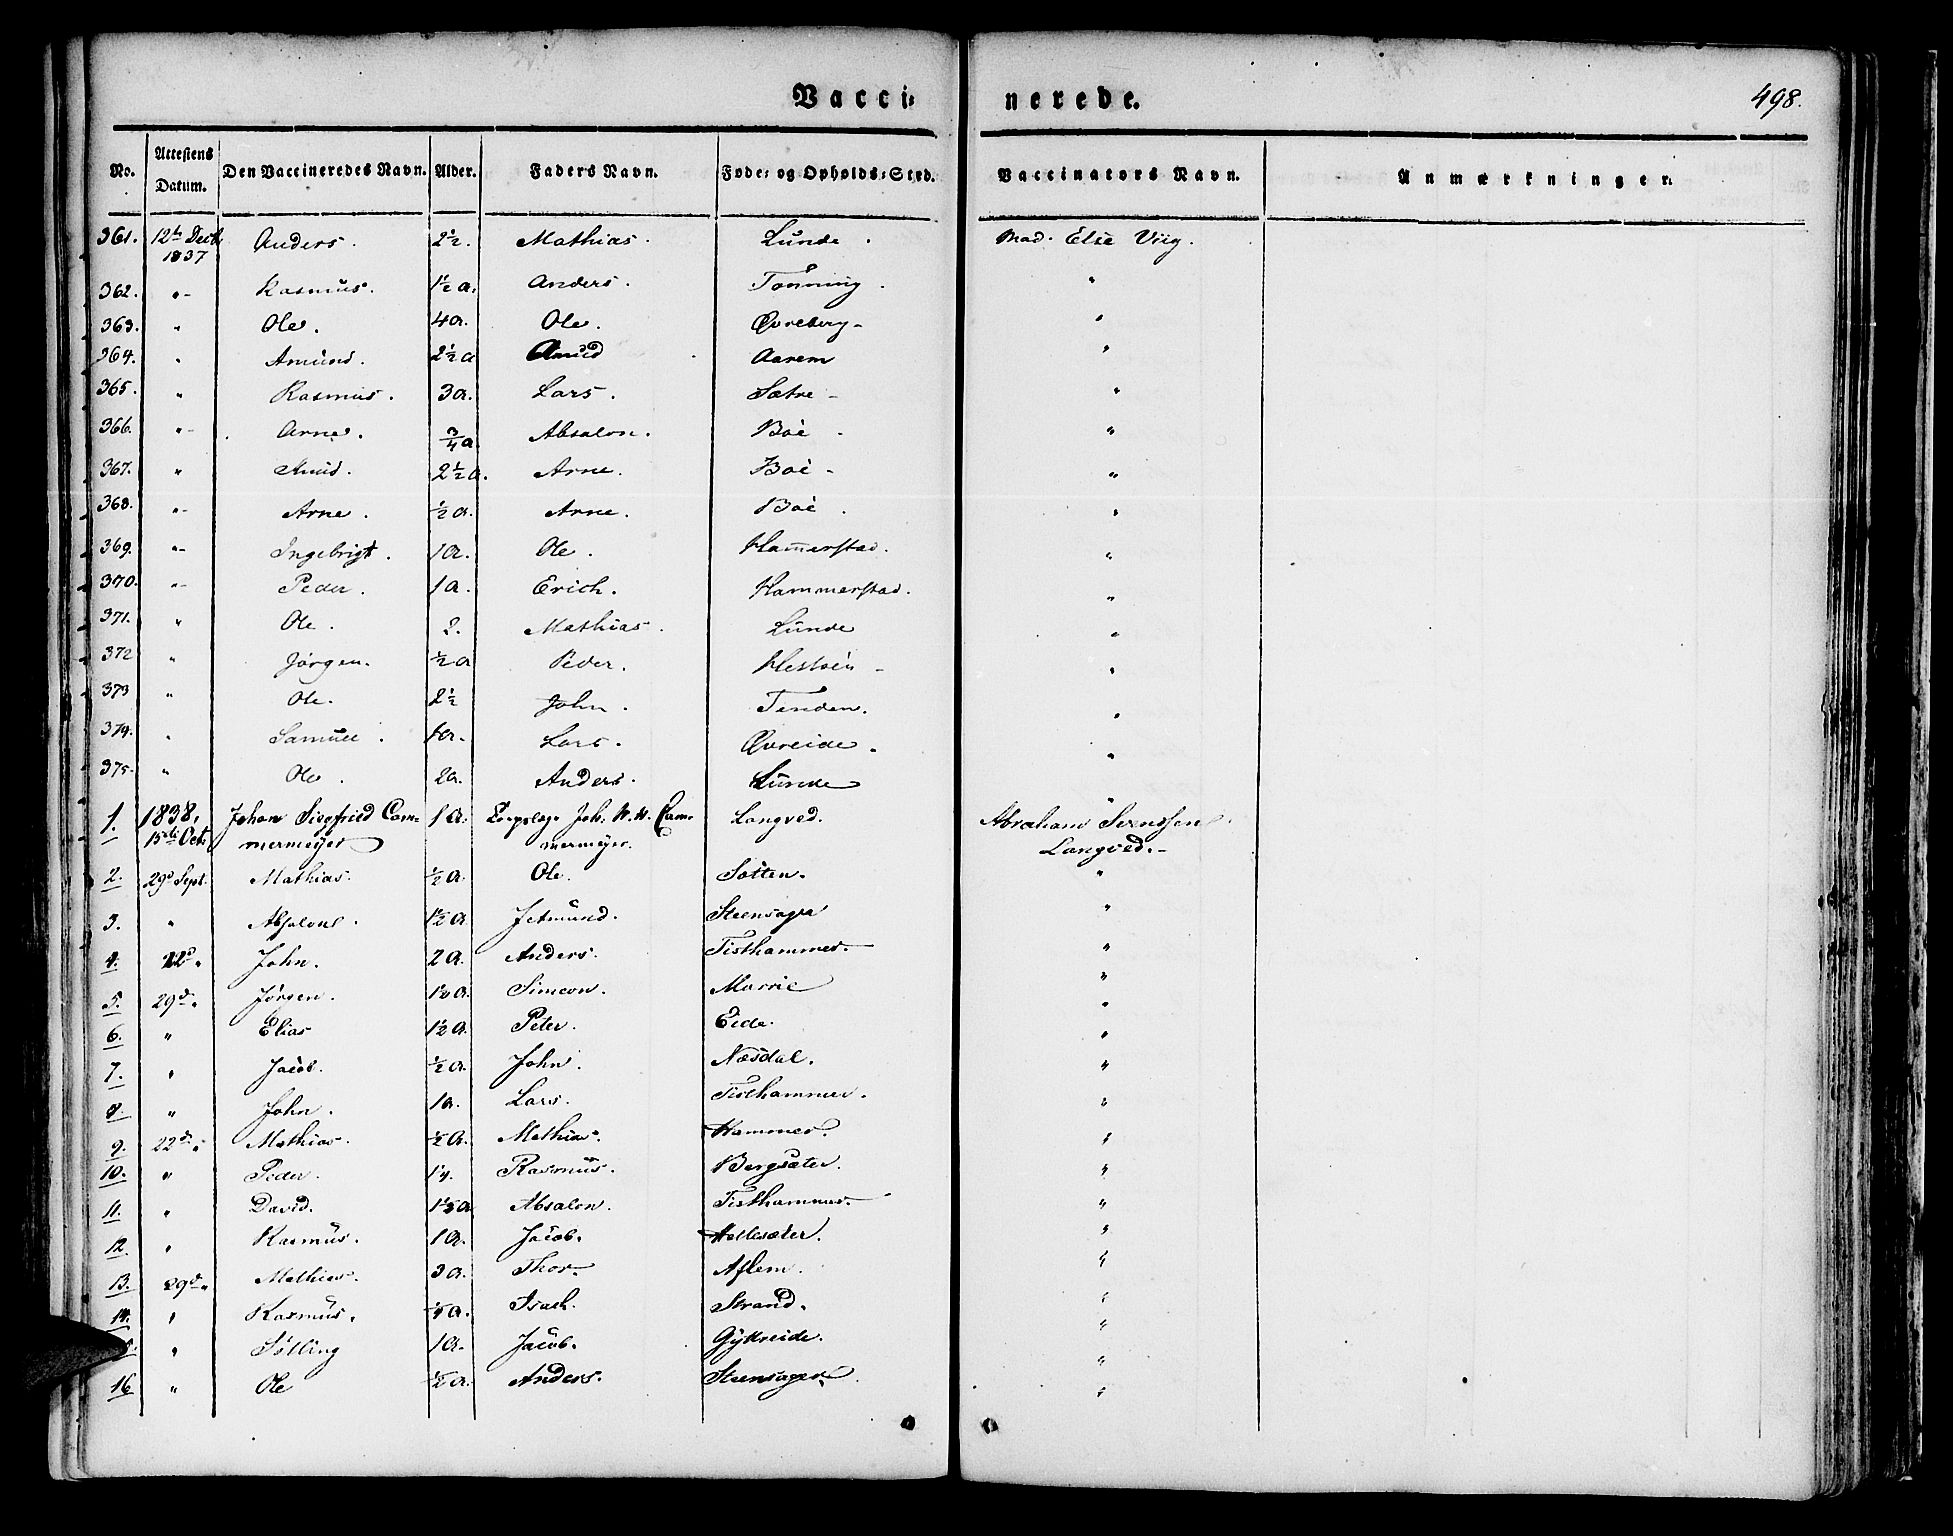 Vacci⸗ nerede. 498.
No. Attestens Datum. Den Vaccineredes Navn. Alder. Faders Navn. Føde⸗ og Opholds⸗Sted. Vaccinators Navn. Anmærkninger.
361. 12te Decb. 1837 Anders. 2½. Mathias. Lunde. Mad. Else Viig.
362. "- Rasmus. 1½ a. Anders. Tønning. "
363. " Ole. 4a. Ole. Øvreberg- "
364. " Amund. 2½ a Aarem "
365. " Rasmus. 3a. Lars. Sætre- "
366. "- Arne. ¾ a Absalon. Boe- "
367. " Knud. 2½ a. Arne. Boe- "
368. "- Arne. ½ a. Arne. Boe. "
369. "- Ingebrigt. 1a. Ole. Ham̅erstad. "
370. "- Peder. 1a. Erich. Hammerstad. "
371. " Ole. 2. Mathias. Lunde "
372 " Jørgen. ½ a Peder. "
373 " Ole. 2½ John. Tenden. "
374. " Samuel. 1a. Lars. Øvreide. "
375. " Ole. 2a. Anders. Lunde "
1. 1838, 15de Oct. Johan Siegfried Cam⸗ 1a. Joh. Cam⸗ Langved. Abraham Svendsen
mermeyer mermeyer. Langved.-
2. 29d Sept. Mathias. ½ a. Ole. Sotten. "
3. " Absalone. 1½ a. Jetmund. Steensager "
4. 22d " John. 2a. Anders. Tisthammer. "
5. 29d " Jørgen. 1½ a. Simeon. Murrie "
6. " Elias 1½ a. Peter. Eide. "
7. " Jacob. ½ a. John. Næsdal. "
8. " John. 1a. Lars. Tisthammer. "
9. 22d " Mathias. ½ a. Mathias. Hammer. "
10. " Peder. Rasmus. Bergsæter. "
11. " David. 1½ a Absalon. Tisthammer. "
12. " Rasmus. 1a. Jacob. Hellesæter. "
13. 29d " Mathias. 3a. Thor- Aflem. "
14. " Rasmus. Isach. Strand. "
" Sølling 1a. Jacob. Gytreide. "
16 " Ole ½ a. Anders. Steensager. "